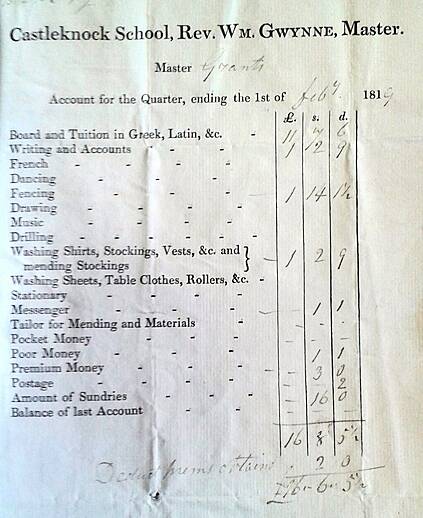 Castleknock School, Rev. Wm. Gwynne, Master.
Master Grants
Account for the Quarter, ending the 1st of Feby. 1819
£. s. d.
Board and Tuition in Greek, Latin, &c. - 11 7 6
Writing and Accounts - - - 1 12 9
French - - - - -
Dancing - - - - -
Fencing - - - - - 1 14 1½
Drawing - - - - -
Music - - - - -
Drilling - - - - -
Washing Shirts, Stockings, Vests, &c. and
mending Stockings } - 1 2 9
Washing Sheets, Table Clothes, Rollers, &c. -
Stationary - - - -
Messenger - - - - - 1 1
Tailor for Mending and Materials - -
Pocket Money - - - -
Poor Money - - - - - 1 1
Premium Money - - - - 3 0
Postage - - - - - - 2
Amount of Sundries - - - - 16 0
Balance of last Account - - -
16 8 5½
Deduct prems obtained 2 0
£16 - 6 - 5½